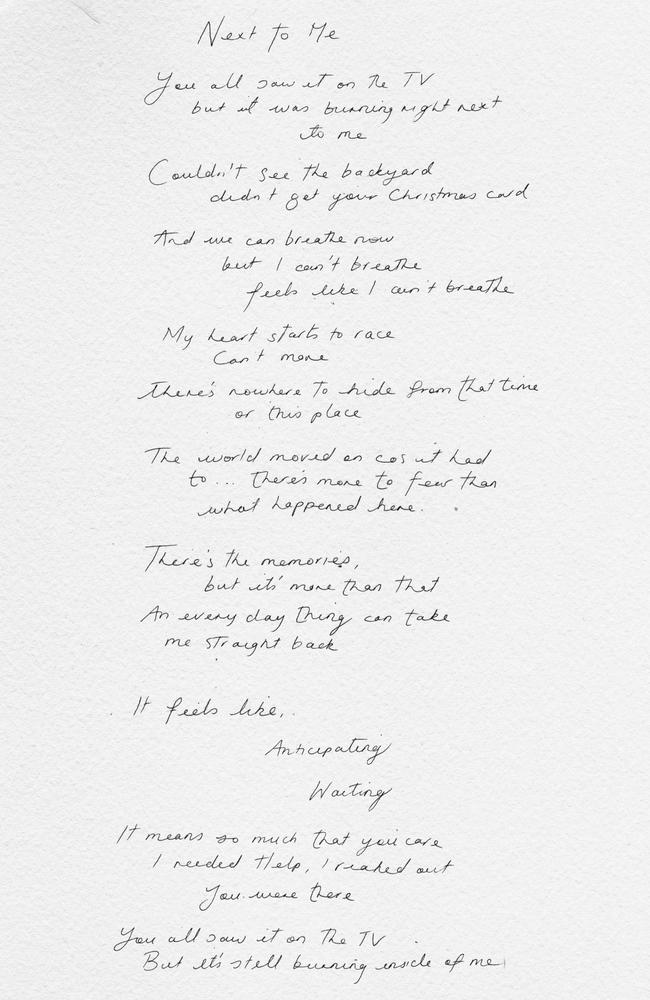 Next to Me
You all saw it on the TV
but it was burning right next
to me
Couldn't see the backyard
didn't get your Christmas card
And we can breathe now
but I can't breathe
feels like I can't breathe
My heart starts to race
Can't move
There's nowhere to hide from that time
or this place
The world moved on cos it had
to... there's more to fear than
what happened here.
There's the memories,
but it's more than that
An every day thing can take
me straight back
It feels like,
Anticipating
Waiting
It means so much that you care
I needed Help, I reached out
You were there
You all saw it on the TV
But it's still burning inside of me